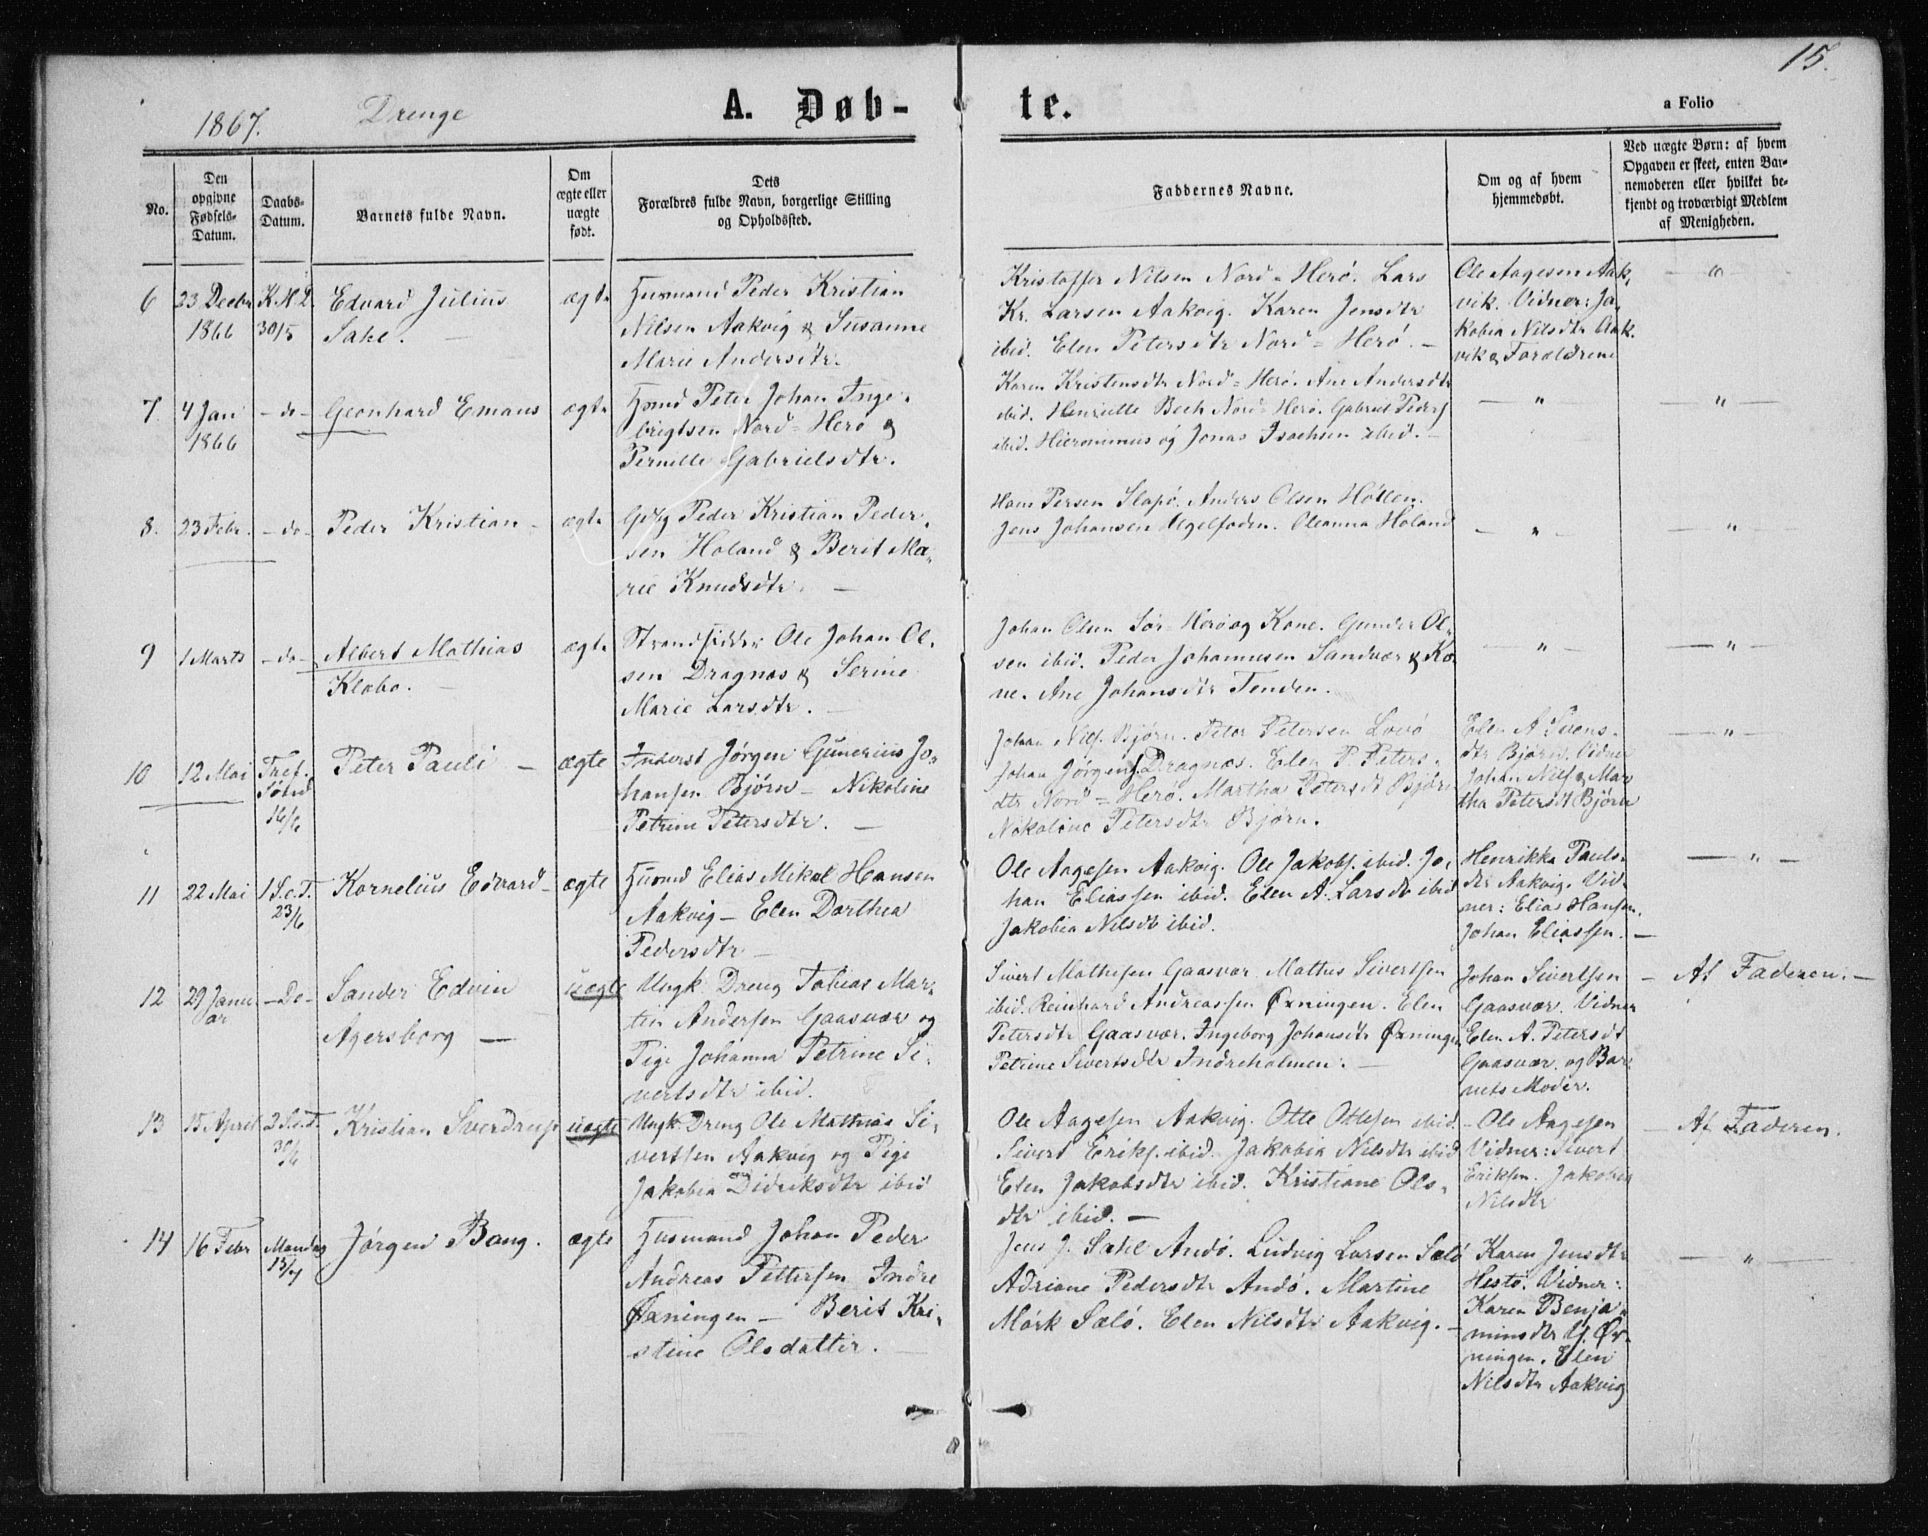 15.
1867. Drenge A. Døb- te. a Folio
No.
Den opgivne Fødsels-Datum.
Daabs-Datum.
Barnets fulde Navn.
Om ægte eller uægte født.
Dets Forældres fulde Navn, borgerlige Stilling og Opholdssted.
Faddernes Navne.
Om og af hvem hjemmedøbt.
Ved uægte Børn: af hvem Opgaven er skeet, enten Barnemoderen eller hvilket bekjendt og troværdigt Medlem af Menigheden.
6 23 Decbr 1866 K. H. D. 30/5
Edvard Julius
Sahl. —
ægte
Huusmand Peder Kristian
Nilsen Aakvig & Susanne
Marie Andersdtr.
Kristoffer Nilsen Nord=Herø. Lars
Kr. Larsen Aakvig. Karen Jensdtr
ibid. Elen Petersdtr Nord=Herø. —
Ole Aagesen Aak-
vik. Vidner: Ja-
kobia Nilsdtr Aak-
vik & Forældrene
— " —
7. 4 Jan 1866 — do —
Leonhard Emans
ægte
Hsmd Peter Johan Inge-
brigtsen Nord=Herø &
Pernille Gabrielsdtr.
Karen Kristensdtr Nord=Herø. Ane Andersdtr
ibid. Henriette Bech Nord=Herø. Gabriel Peders
ibid. Hieronimus og Jonas Isachsen ibid. —
— " —
— " —
8. 23 Febr. — do —
Peder Kristian —
ægte
Peder Kristian Peder-
sen Holand & Berit Ma-
rie Knudsdtr. —
Hans Persen Slapø. Anders Olsen Høllen.
Jens Johansen Ugelfaden. Oleanna Holand
— " —
— " —
9 1 Marts — do —
Albert Mathias
Klobo. —
ægte
Strandsidder Ole Johan Ol-
sen Dragnæs & Serine
Marie Larsdtr. —
Johan Olsen Sør-Herø og Kone. Gunder Ol-
sen ibid. Peder Johannesen Sandvær & Ko-
ne. Ane Johansdtr Tenden.
— " —
— " —
10 12 Mai Tref. Sønd 16/6
Peter Pauli —
ægte
Inderst Jørgen Gunerius Jo-
hansen Bjørn — Nikoline
Petrine Petersdtr. —
Johan Nils. Bjørn. Peter Petersen Lovø
Johan Jørgens. Dragnæs. Elen P. Peters-
dtr Nord=Herø. Martha Petersdt Bjørn
Nikoline Petersdtr Bjørn.
Elen A. Svens-
dtr Bjørn. Vidner
Johan Nils & Mar
tha Petersdt Bjørn
— " —
11 22 Mai 1 S. e. T. 23/6
Kornelius Edvard —
ægte
Huusmd Elias Mikal Hansen
Aakvig — Elen Dorthea
Pedersdtr —
Ole Aagesen Aakvig. Ole Jakobs. ibid. Jo-
han Eliassen ibid. Elen A. Larsdtr ibid
Jakobia Nilsdtr ibid.
Henrikka Pauls-
dtr Aakvig. Vid-
ner: Elias Hansen.
Johan Eliassen. —
— " —
12 29 Janu-ar — Do —
Sander Edvin
Agersborg —
uægte
Ungk. Dreng Tobias Mar-
tin Andersen Gaasvær og
Pige Johanna Petrine Si-
vertsdtr ibid.
Sivert Mathesen Gaasvær. Mathis Sivertsen
ibid. Reinhard Andreassen Øxningen. Elen
Petersdtr Gaasvær. Ingeborg Johansdtr Øxningen
Petrine Sivertsdtr Indreholmen. —
Johan Sivertsen
Gaasvær. Vidner
Elen A. Petersdt
Gaasvær. og Bar-
nets Moder.
— Af Faderen. —
13 15 April 2 S. e. T. 30/6
Kristian Sverdrup
uægte
Ungk. Dreng Ole Mathias Si-
vertsen Aakvig og Pige
Jakobia Didriksdtr ibid
Ole Aagesen Aakvig. Otte Ottesen ibid.
Sivert Eriks. ibid. Jakobia Nilsdtr ibid
Elen Jakobsdtr ibid. Kristiane Ols-
dtr ibid. —
— Ole Aagesen
Vidner: Sivert
Eriksen. Jakobia
Nilsdtr
— Af Faderen.
14 16 Febr Mandag 15/7
Jørgen Bang.
ægte
Husmand Johan Peder
Andreas Pettersen Indre
Øxningen — Berit Kri-
stine Olsdatter. —
Jens J. Sahl Andø. Ludvig Larsen Sælø
Adriane Pedersdtr Andø. Martine
Mørk Sælø. Elen Nilsdtr Aakvig. —
Karen Jensdtr
Hestø. Vidner:
Karen Benja-
minsdtr Øx-
ningen. Elen
Nilsdtr Aakvig
— " —